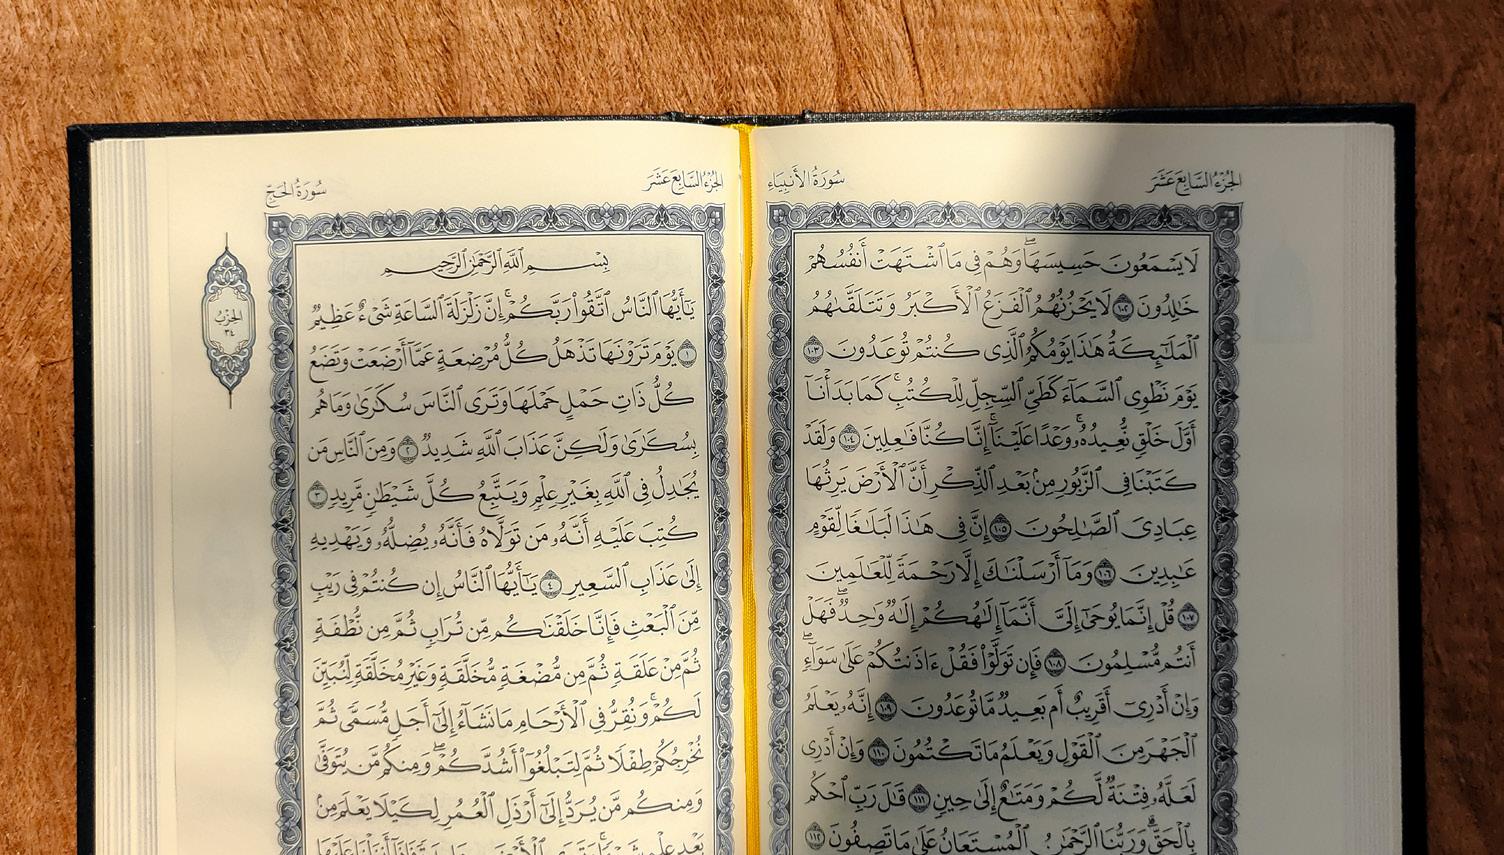 الجزء السابع عشر
سورة الأنبياء
لَا يَسْمَعُونَ حَسِيسَهَا ۖ وَهُمْ فِي مَا ٱشْتَهَتْ أَنفُسُهُمْ
خَٰلِدُونَ ١٠٢ لَا يَحْزُنُهُمُ ٱلْفَزَعُ ٱلْأَكْبَرُ وَتَتَلَقَّىٰهُمُ
ٱلْمَلَٰٓئِكَةُ هَٰذَا يَوْمُكُمُ ٱلَّذِي كُنتُمْ تُوعَدُونَ ١٠٣
يَوْمَ نَطْوِي ٱلسَّمَآءَ كَطَيِّ ٱلسِّجِلِّ لِلْكُتُبِ ۚ كَمَا بَدَأْنَآ
أَوَّلَ خَلْقٍ نُّعِيدُهُۥ ۚ وَعْدًا عَلَيْنَآ ۚ إِنَّا كُنَّا فَٰعِلِينَ ١٠٤ وَلَقَدْ
كَتَبْنَا فِي ٱلزَّبُورِ مِنۢ بَعْدِ ٱلذِّكْرِ أَنَّ ٱلْأَرْضَ يَرِثُهَا
عِبَادِيَ ٱلصَّٰلِحُونَ ١٠٥ إِنَّ فِي هَٰذَا لَبَلَٰغًا لِّقَوْمٍ
عَٰبِدِينَ ١٠٦ وَمَآ أَرْسَلْنَٰكَ إِلَّا رَحْمَةً لِّلْعَٰلَمِينَ
١٠٧ قُلْ إِنَّمَا يُوحَىٰٓ إِلَيَّ أَنَّمَآ إِلَٰهُكُمْ إِلَٰهٌ وَٰحِدٌ ۖ فَهَلْ
أَنتُم مُّسْلِمُونَ ١٠٨ فَإِن تَوَلَّوْا۟ فَقُلْ ءَاذَنتُكُمْ عَلَىٰ سَوَآءٍ ۖ
وَإِنْ أَدْرِيٓ أَقَرِيبٌ أَم بَعِيدٌ مَّا تُوعَدُونَ ١٠٩ إِنَّهُۥ يَعْلَمُ
ٱلْجَهْرَ مِنَ ٱلْقَوْلِ وَيَعْلَمُ مَا تَكْتُمُونَ ١١٠ وَإِنْ أَدْرِي
لَعَلَّهُۥ فِتْنَةٌ لَّكُمْ وَمَتَٰعٌ إِلَىٰ حِينٍ ١١١ قَٰلَ رَبِّ ٱحْكُم
بِٱلْحَقِّ ۗ وَرَبُّنَا ٱلرَّحْمَٰنُ ٱلْمُسْتَعَانُ عَلَىٰ مَا تَصِفُونَ ١١٢
الجزء السابع عشر
سورة الحج
بِسْمِ ٱللَّهِ ٱلرَّحْمَٰنِ ٱلرَّحِيمِ
يَٰٓأَيُّهَا ٱلنَّاسُ ٱتَّقُوا۟ رَبَّكُمْ ۚ إِنَّ زَلْزَلَةَ ٱلسَّاعَةِ شَيْءٌ عَظِيمٌ
١ يَوْمَ تَرَوْنَهَا تَذْهَلُ كُلُّ مُرْضِعَةٍ عَمَّآ أَرْضَعَتْ وَتَضَعُ
كُلُّ ذَاتِ حَمْلٍ حَمْلَهَا وَتَرَى ٱلنَّاسَ سُكَٰرَىٰ وَمَا هُم
بِسُكَٰرَىٰ وَلَٰكِنَّ عَذَابَ ٱللَّهِ شَدِيدٌ ٢ وَمِنَ ٱلنَّاسِ مَن
يُجَٰدِلُ فِي ٱللَّهِ بِغَيْرِ عِلْمٍ وَيَتَّبِعُ كُلَّ شَيْطَٰنٍ مَّرِيدٍ ٣
كُتِبَ عَلَيْهِ أَنَّهُۥ مَن تَوَلَّاهُ فَأَنَّهُۥ يُضِلُّهُۥ وَيَهْدِيهِ
إِلَىٰ عَذَابِ ٱلسَّعِيرِ ٤ يَٰٓأَيُّهَا ٱلنَّاسُ إِن كُنتُمْ فِي رَيْبٍ
مِّنَ ٱلْبَعْثِ فَإِنَّا خَلَقْنَٰكُم مِّن تُرَابٍ ثُمَّ مِن نُّطْفَةٍ
ثُمَّ مِنْ عَلَقَةٍ ثُمَّ مِن مُّضْغَةٍ مُّخَلَّقَةٍ وَغَيْرِ مُخَلَّقَةٍ لِّنُبَيِّنَ
لَكُمْ ۚ وَنُقِرُّ فِي ٱلْأَرْحَامِ مَا نَشَآءُ إِلَىٰٓ أَجَلٍ مُّسَمًّى ثُمَّ
نُخْرِجُكُمْ طِفْلًا ثُمَّ لِتَبْلُغُوٓا۟ أَشُدَّكُمْ ۖ وَمِنكُم مَّن يُتَوَفَّىٰ
وَمِنكُم مَّن يُرَدُّ إِلَىٰٓ أَرْذَلِ ٱلْعُمُرِ لِكَيْلَا يَعْلَمَ مِنۢ
بَعْدِ عِلْمٍ شَيْـًٔا ۚ وَتَرَى ٱلْأَرْضَ
الحزب
٣٤